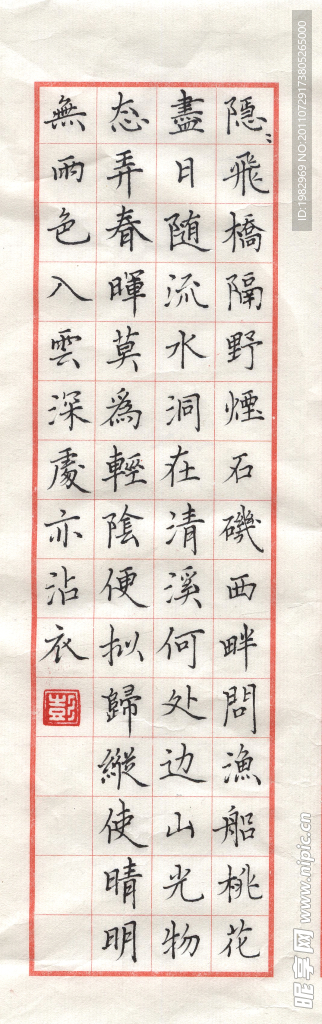 隐〻飛橋隔野煙石磯西畔問漁船桃花
盡日随流水洞在清溪何处边山光物
态弄春暉莫為輕陰便拟歸縱使晴明
無雨色入雲深處亦沾衣
彭
ID:1982969 NO:20110729173805265000
昵享网 www.nipic.cn